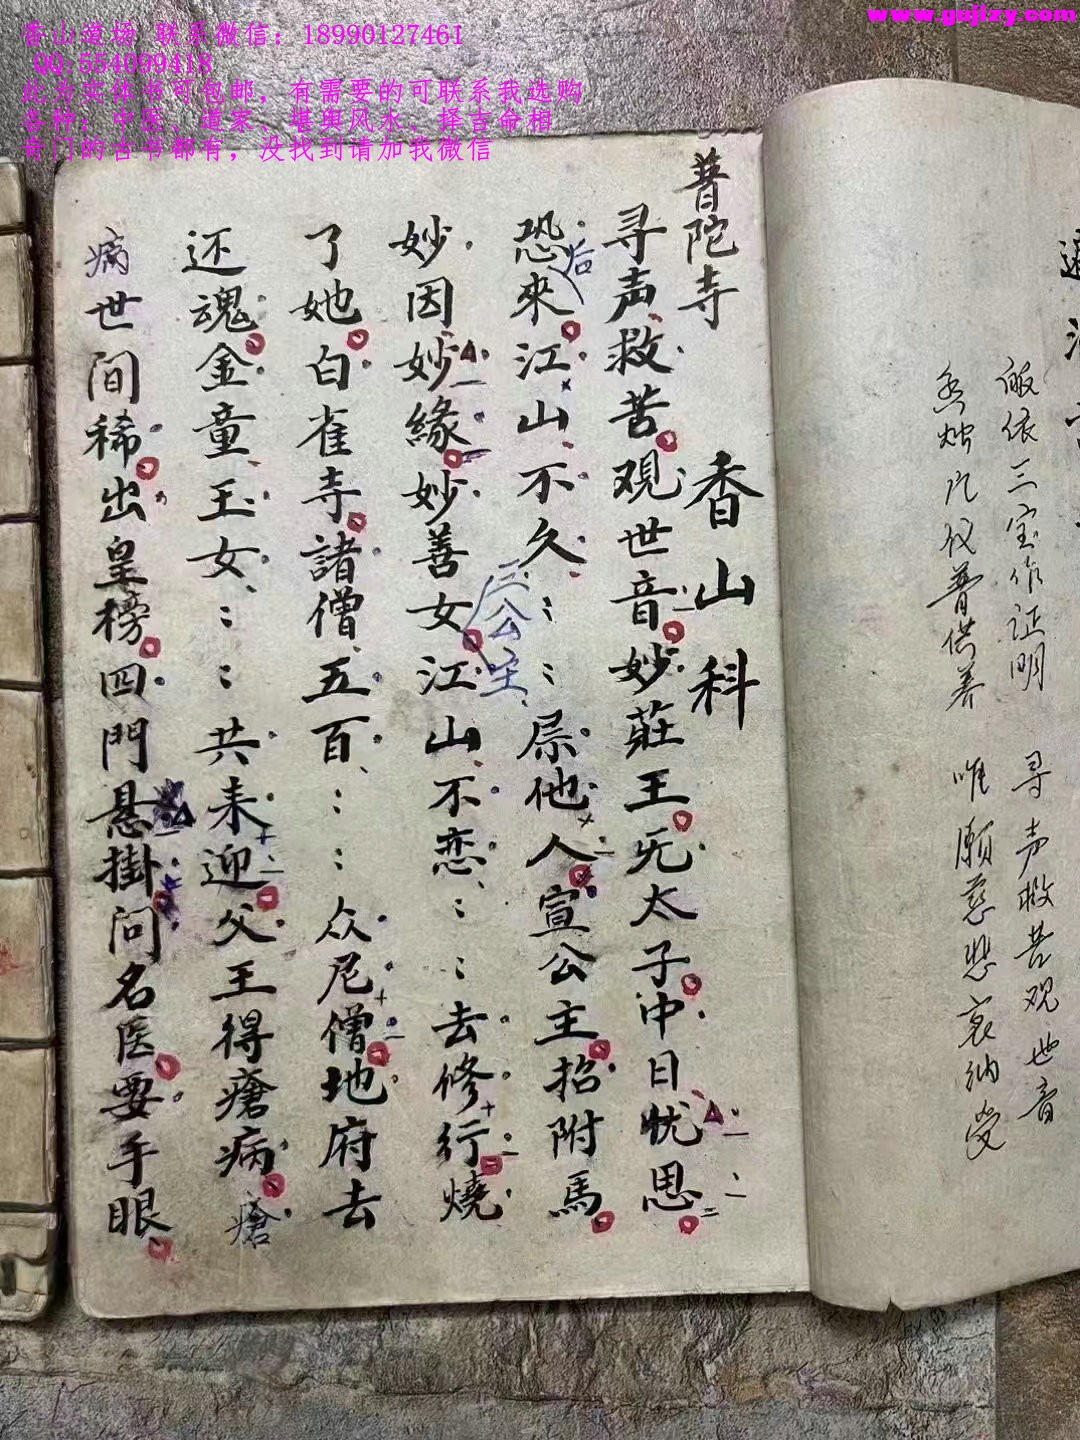 www.gujizy.com
香山道场 联系微信:18990127461
QQ:554099418
此为实体书可包邮,有需要的可联系我选购
各种:中医、道家、堪舆风水、择吉命相
奇门的古书都有,没找到请加我微信
皈依三宝作证明 寻声救苦观世音
唯願慈悲哀纳受
普陀寺
香山科
寻声救苦观世音妙莊王旡太子冲日忧思
恐來江山不久::屌他人宣公主招附馬
后
妙因妙妙緣妙善女江山不恋::去修行燒
三公主
了她白雀寺諸僧五百::众尼僧地府去
还魂金童玉女::共耒迎父王得瘡病
瘡
世間稀出皇榜四門悬掛问名医要手眼